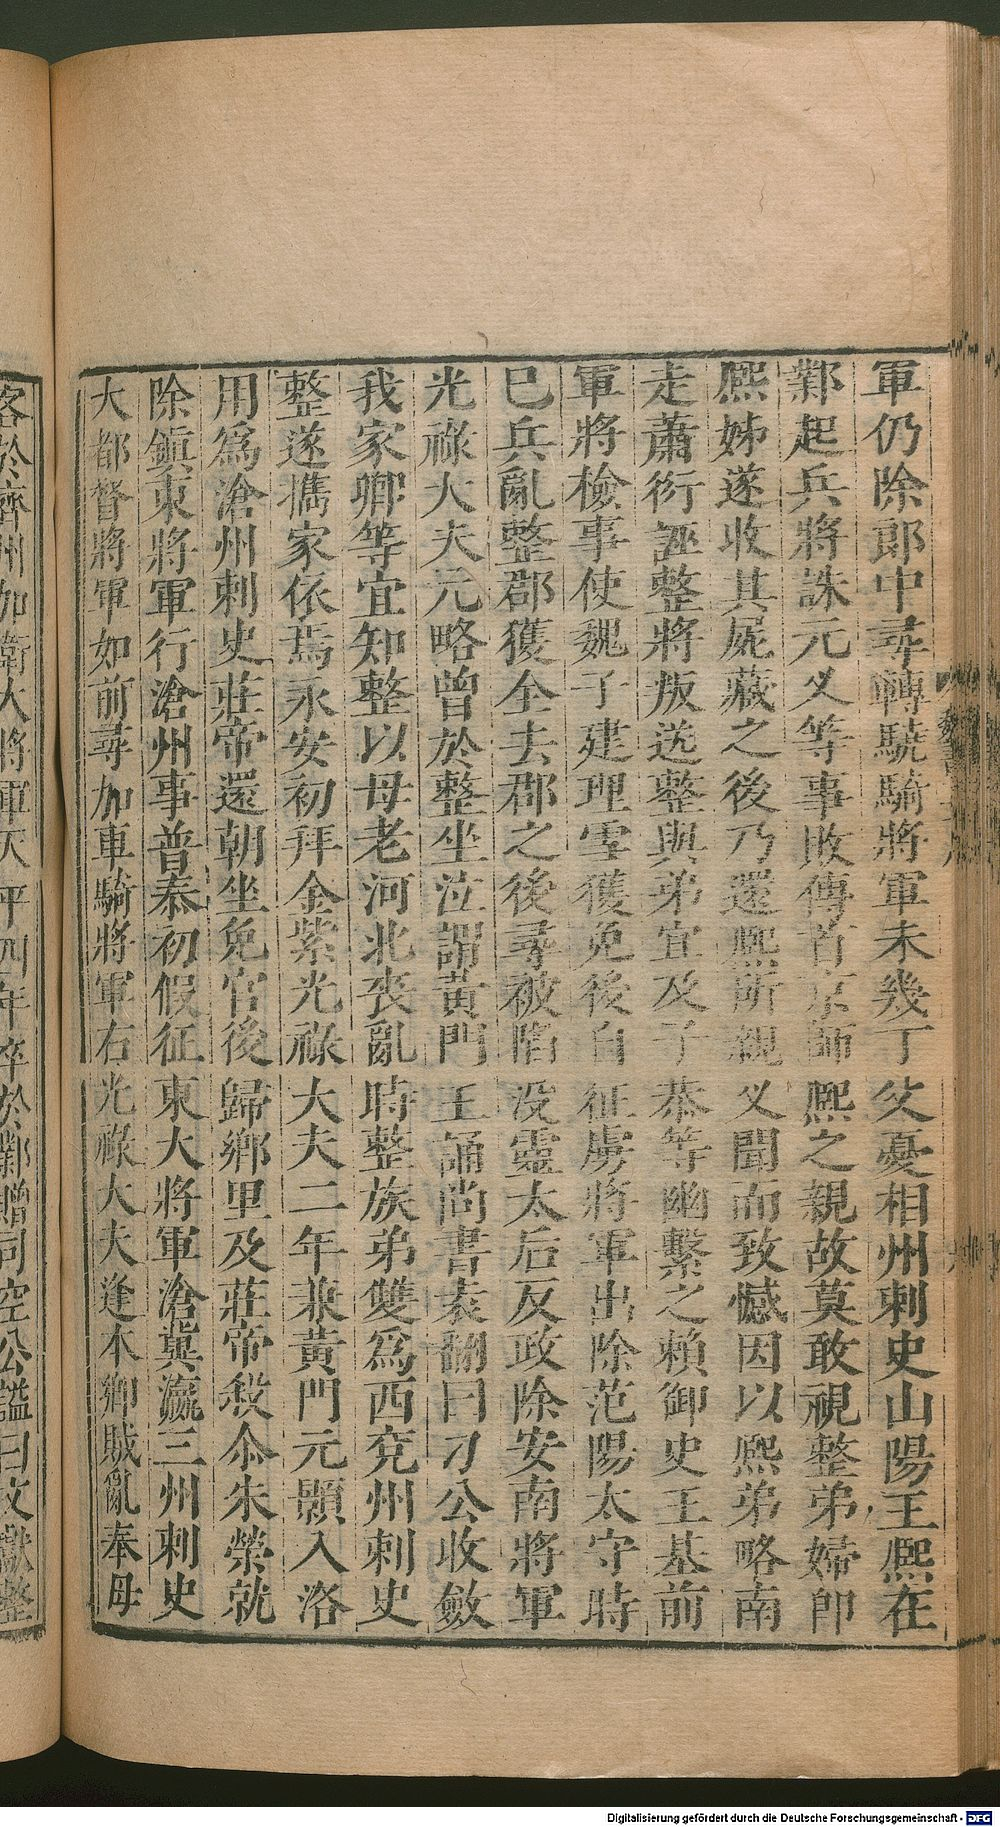 軍仍除郎中尋轉驍騎將軍未幾丁父憂相州刺史山陽王熙在
鄴起兵將誅元乂等事敗傳首京師熙之親故莫敢視整弟婦卽
熙姊遂收其屍藏之後乃還熙所親乂聞而致憾因以熙弟略南
走蕭衍誣整將叛送整與弟宣及子恭等幽繫之賴御史王基前
軍將檢事使魏子建理雪獲免後自征虜將軍出除范陽太守時
巳兵亂整郡獲全去郡之後尋被陷没靈太后反政除安南將軍
光祿大夫元略曾於整坐泣謂黃門王誦尚書袁翻曰刁公收斂
我家卿等宜知整以母老河北喪亂時整族弟雙爲西兖州刺史
整遂攜家依焉永安初拜金紫光祿大夫二年兼黃門元顥入洛
用爲滄州刺史莊帝還朝坐免官後歸鄉里及莊帝殺尒朱榮就
除鎭東將軍行滄州事普泰初假征東大將軍滄冀瀛三州刺史
大都督將軍如前尋加車騎將軍右光祿大夫逢本鄉賊亂奉母
客於齊州加衛大將軍天平四年卒於鄴贈司空公謚曰文獻整
Digitalisierung gefördert durch die Deutsche Forschungsgemeinschaft - DFG